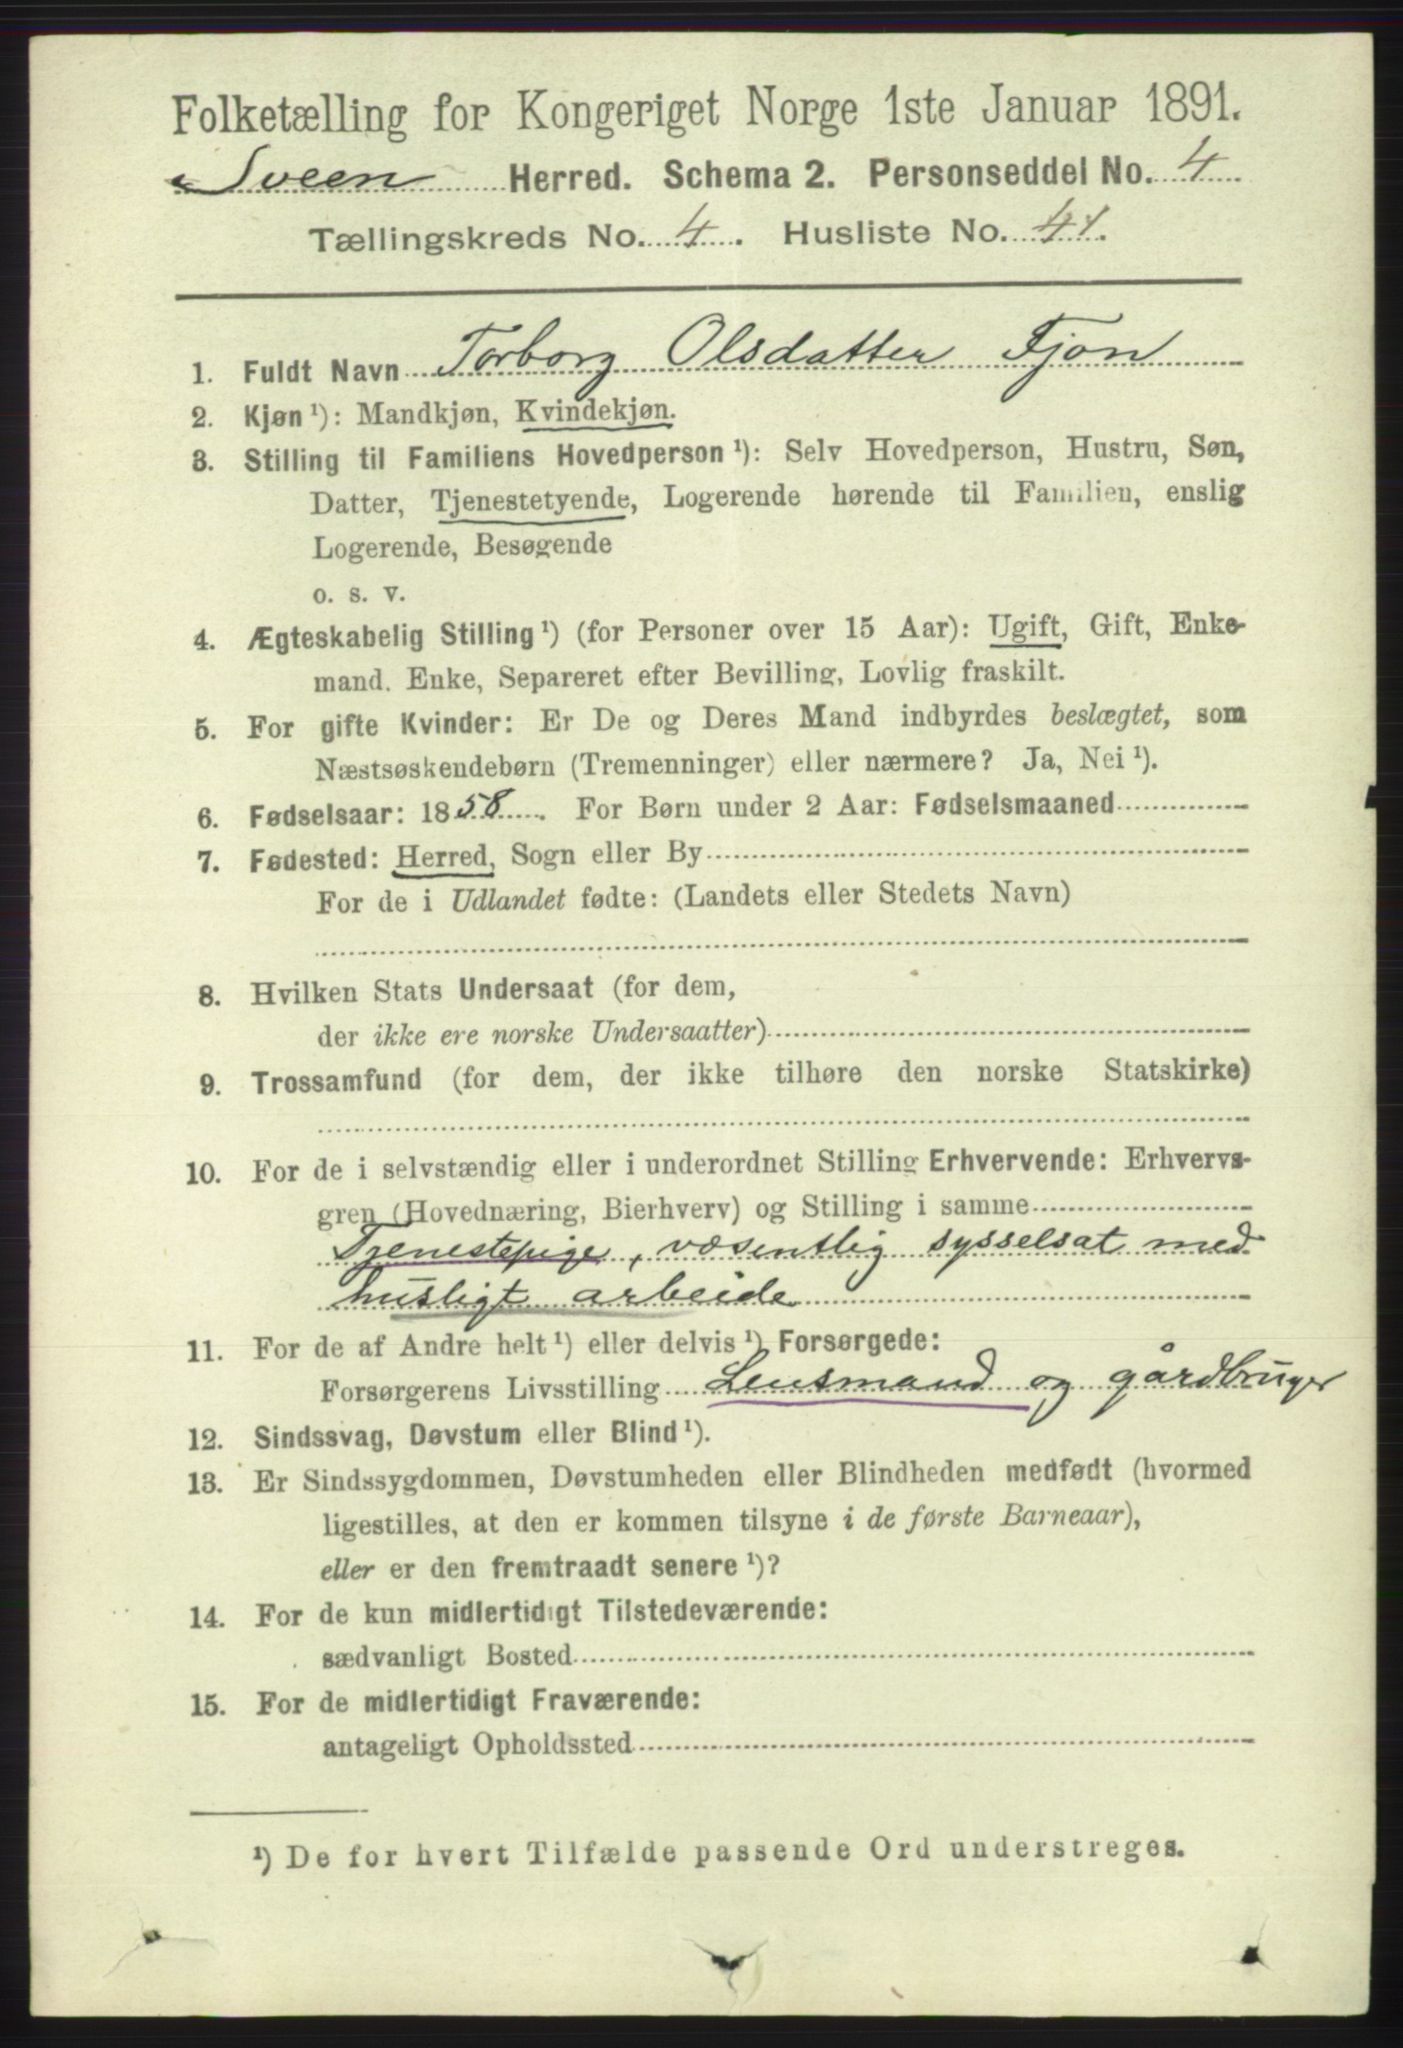 Folketælling for Kongeriget Norge 1ste Januar 1891.
Sveen Herred. Schema 2. Personseddel No. 4
Tællingskreds No. 4. Husliste No. 41.
1. Fuldt Navn Torborg Olsdatter Fjon
2. Kjøn ¹): Mandkjøn, Kvindekjøn.
3. Stilling til Familiens Hovedperson ¹): Selv Hovedperson, Hustru, Søn,
Datter, Tjenestetyende, Logerende hørende til Familien, enslig
Logerende, Besøgende
o. s. v.
4. Ægteskabelig Stilling ¹) (for Personer over 15 Aar): Ugift, Gift, Enke-
mand. Enke, Separeret efter Bevilling, Lovlig fraskilt.
5. For gifte Kvinder: Er De og Deres Mand indbyrdes beslægtet, som
Næstsøskendebørn (Tremenninger) eller nærmere? Ja, Nei ¹).
6. Fødselsaar: 1858. For Børn under 2 Aar: Fødselsmaaned
7. Fødested: Herred, Sogn eller By
For de i Udlandet fødte: (Landets eller Stedets Navn)
8. Hvilken Stats Undersaat (for dem,
der ikke ere norske Undersaatter)
9. Trossamfund (for dem, der ikke tilhøre den norske Statskirke)
10. For de i selvstændig eller i underordnet Stilling Erhvervende: Erhvervs-
gren (Hovednæring, Bierhverv) og Stilling i samme
Tjenestepige, væsentlig sysselsat med
husligt arbeide
11. For de af Andre helt ¹) eller delvis ¹) Forsørgede:
Forsørgerens Livsstilling Lensmand og gårdbruger
12. Sindssvag, Døvstum eller Blind ¹).
13. Er Sindssygdommen, Døvstumheden eller Blindheden medfødt (hvormed
ligestilles, at den er kommen tilsyne i de første Barneaar),
eller er den fremtraadt senere ¹)?
14. For de kun midlertidigt Tilstedeværende:
sædvanligt Bosted
15. For de midlertidigt Fraværende:
antageligt Opholdssted
¹) De for hvert Tilfælde passende Ord understreges.